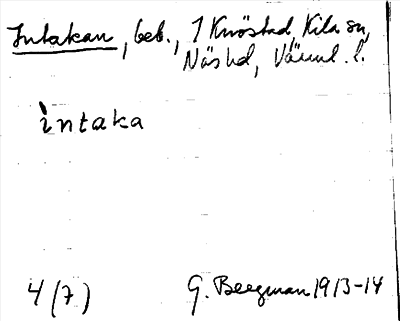 Intakan, beb., 1 Knöstad, Kila sn,
Näs hd, Värml. l.
ìntaka
4 (7) G. Bergman 1913-14